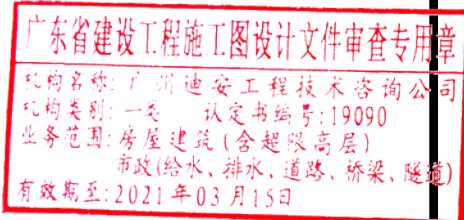 广东省建设工程施工图设计文件审查专用章
机构名称:广州迪安工程技术咨询公司
机构类别:一类 认定书编号:19090
业务范围:房屋建筑(含超限高层)
市政(给水、排水、道路、桥梁、隧道)
有效期至:2021年03月15日